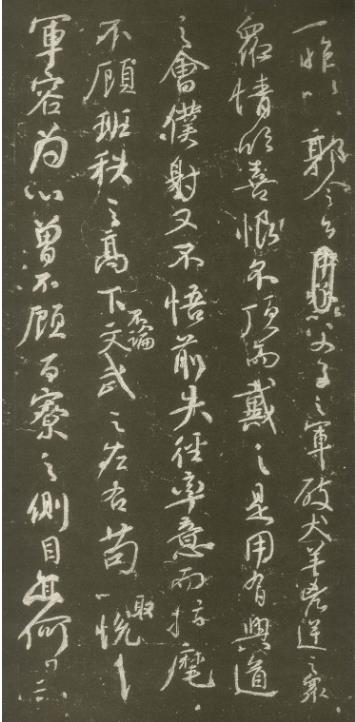 一昨以郭令公以父子之軍破犬羊兇逆之衆
衆情欣喜恨不頂而戴之是用有興道
之會僕射又不悟前失徑率意而指麾
不顧班秩之高下不論文武之左右苟以取悅
軍容為心曾不顧百寮之側目亦何異